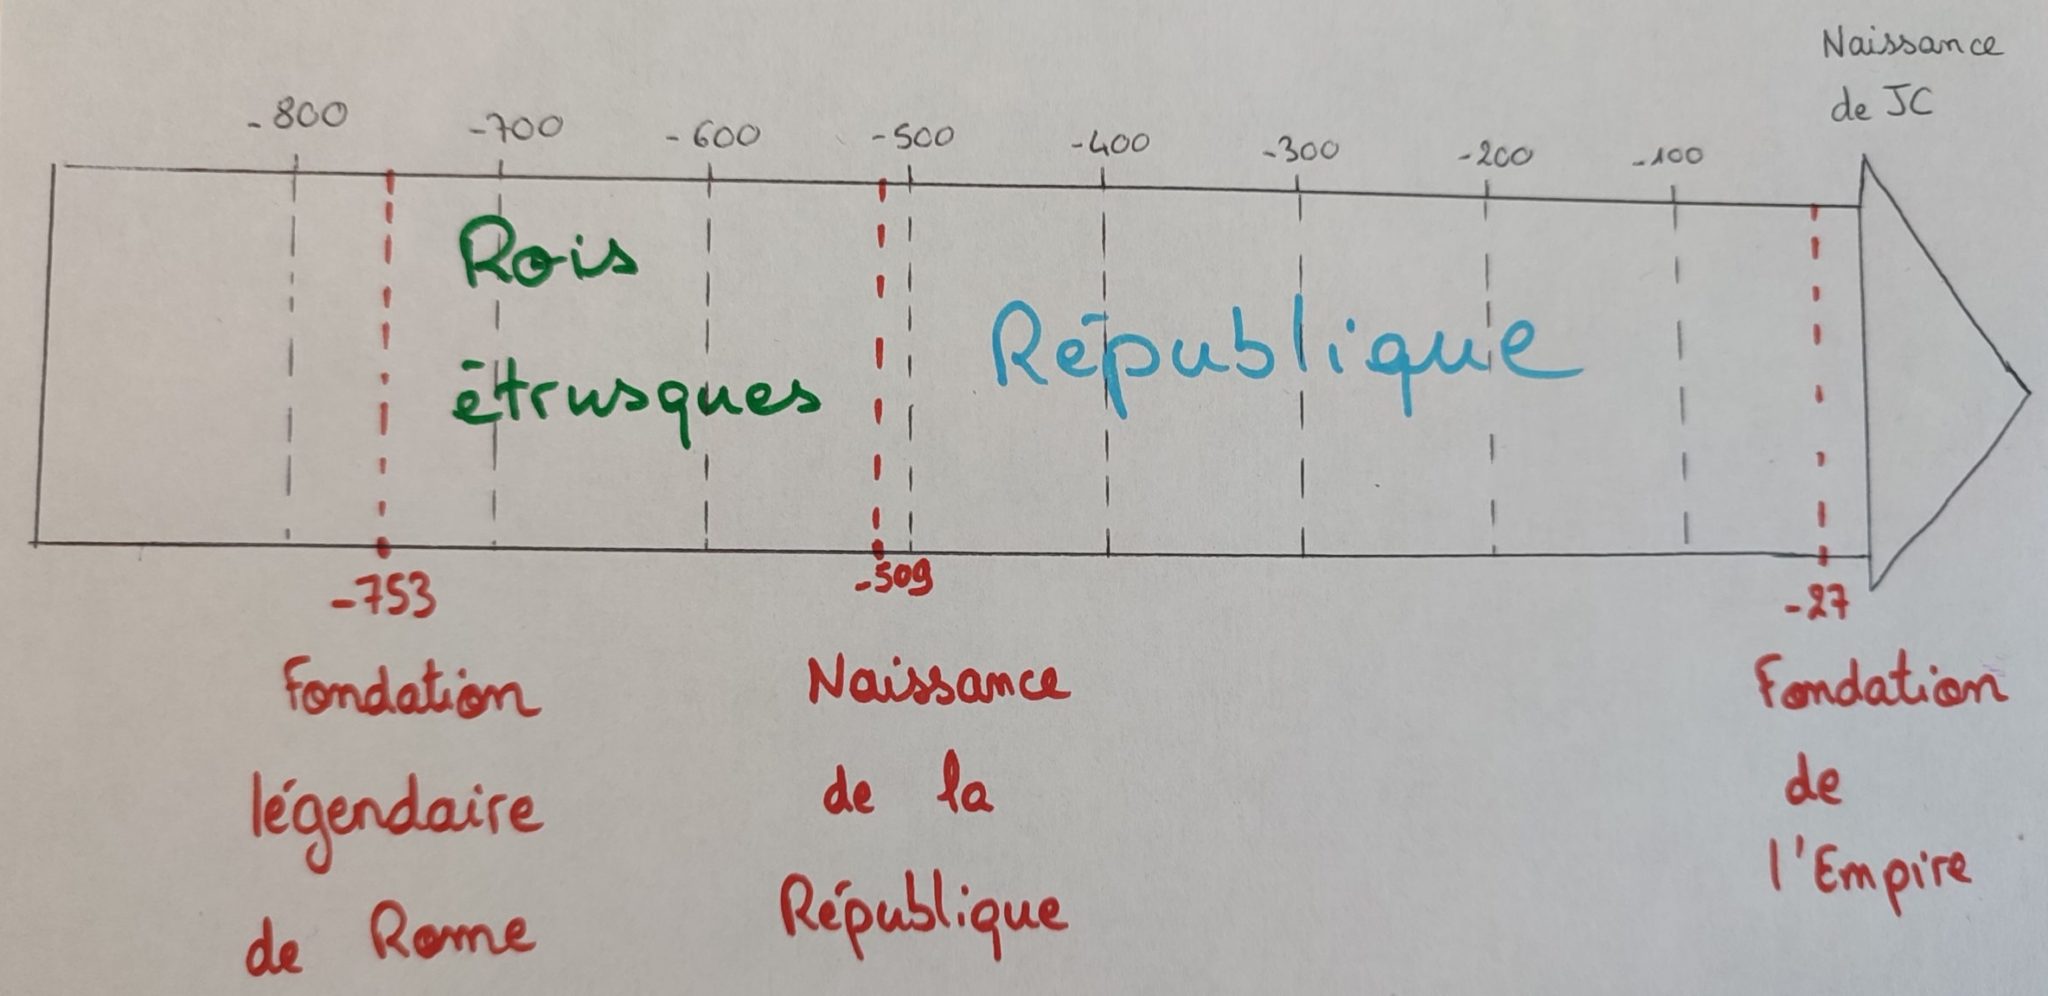 Naissance
de JC
-800 -700 -600 -500 -400 -300 -200 -100
Rois
étrusques
République
-753 -509 -27
Fondation
légendaire
de Rome
Naissance
de la
République
Fondation
de
l'Empire